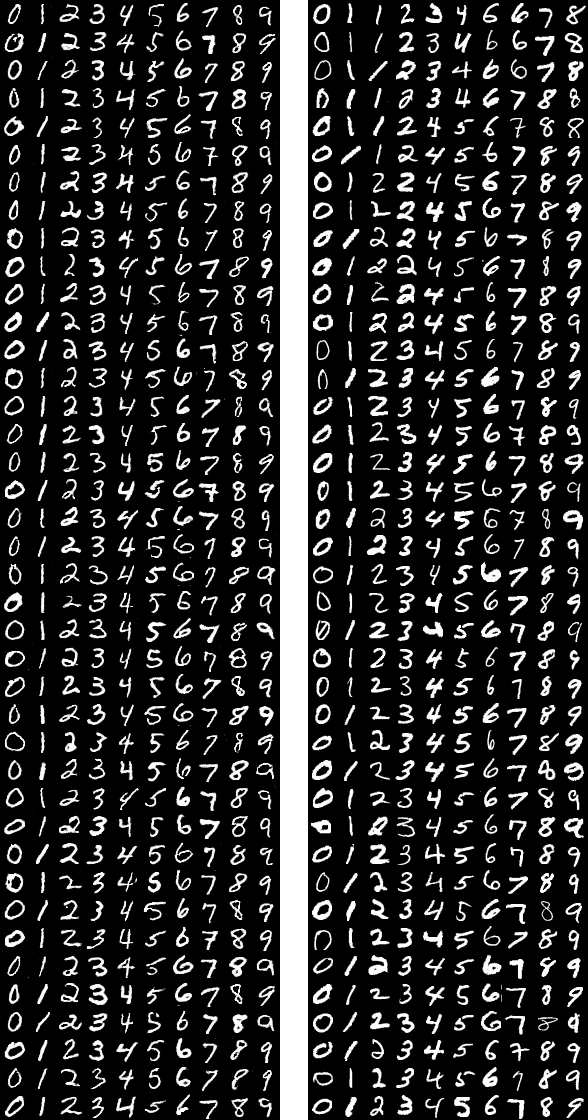 0 1 2 3 4 5 6 7 8 9 0 1 1 2 3 4 6 6 7 8
0 1 2 3 4 5 6 7 8 9 0 1 1 2 3 4 6 6 7 8
0 1 2 3 4 5 6 7 8 9 0 1 1 2 3 4 6 6 7 8
0 1 2 3 4 5 6 7 8 9 0 1 1 2 3 4 6 7 8 8
0 1 2 3 4 5 6 7 8 9 0 1 1 2 4 5 6 7 8 8
0 1 2 3 4 5 6 7 8 9 0 1 1 2 4 5 6 7 8 9
0 1 2 3 4 5 6 7 8 9 0 1 2 2 4 5 6 7 8 9
0 1 2 3 4 5 6 7 8 9 0 1 2 2 4 5 6 7 8 9
0 1 2 3 4 5 6 7 8 9 0 1 2 2 4 5 6 7 8 9
0 1 2 3 4 5 6 7 8 9 0 1 2 2 4 5 6 7 8 9
0 1 2 3 4 5 6 7 8 9 0 1 2 2 4 5 6 7 8 9
0 1 2 3 4 5 6 7 8 9 0 1 2 2 4 5 6 7 8 9
0 1 2 3 4 5 6 7 8 9 0 1 2 3 4 5 6 7 8 9
0 1 2 3 4 5 6 7 8 9 0 1 2 3 4 5 6 7 8 9
0 1 2 3 4 5 6 7 8 9 0 1 2 3 4 5 6 7 8 9
0 1 2 3 4 5 6 7 8 9 0 1 2 3 4 5 6 7 8 9
0 1 2 3 4 5 6 7 8 9 0 1 2 3 4 5 6 7 8 9
0 1 2 3 4 5 6 7 8 9 0 1 2 3 4 5 6 7 8 9
0 1 2 3 4 5 6 7 8 9 0 1 2 3 4 5 6 7 8 9
0 1 2 3 4 5 6 7 8 9 0 1 2 3 4 5 6 7 8 9
0 1 2 3 4 5 6 7 8 9 0 1 2 3 4 5 6 7 8 9
0 1 2 3 4 5 6 7 8 9 0 1 2 3 4 5 6 7 8 9
0 1 2 3 4 5 6 7 8 9 0 1 2 3 4 5 6 7 8 9
0 1 2 3 4 5 6 7 8 9 0 1 2 3 4 5 6 7 8 9
0 1 2 3 4 5 6 7 8 9 0 1 2 3 4 5 6 7 8 9
0 1 2 3 4 5 6 7 8 9 0 1 2 3 4 5 6 7 8 9
0 1 2 3 4 5 6 7 8 9 0 1 2 3 4 5 6 7 8 9
0 1 2 3 4 5 6 7 8 9 0 1 2 3 4 5 6 7 8 9
0 1 2 3 4 5 6 7 8 9 0 1 2 3 4 5 6 7 8 9
0 1 2 3 4 5 6 7 8 9 0 1 2 3 4 5 6 7 8 9
0 1 2 3 4 5 6 7 8 9 0 1 2 3 4 5 6 7 8 9
0 1 2 3 4 5 6 7 8 9 0 1 2 3 4 5 6 7 8 9
0 1 2 3 4 5 6 7 8 9 0 1 2 3 4 5 6 7 8 9
0 1 2 3 4 5 6 7 8 9 0 1 2 3 4 5 6 7 8 9
0 1 2 3 4 5 6 7 8 9 0 1 2 3 4 5 6 7 8 9
0 1 2 3 4 5 6 7 8 9 0 1 2 3 4 5 6 7 8 9
0 1 2 3 4 5 6 7 8 9 0 1 2 3 4 5 6 7 8 9
0 1 2 3 4 5 6 7 8 9 0 1 2 3 4 5 6 7 8 9
0 1 2 3 4 5 6 7 8 9 0 1 2 3 4 5 6 7 8 9
0 1 2 3 4 5 6 7 8 9 0 1 2 3 4 5 6 7 8 9